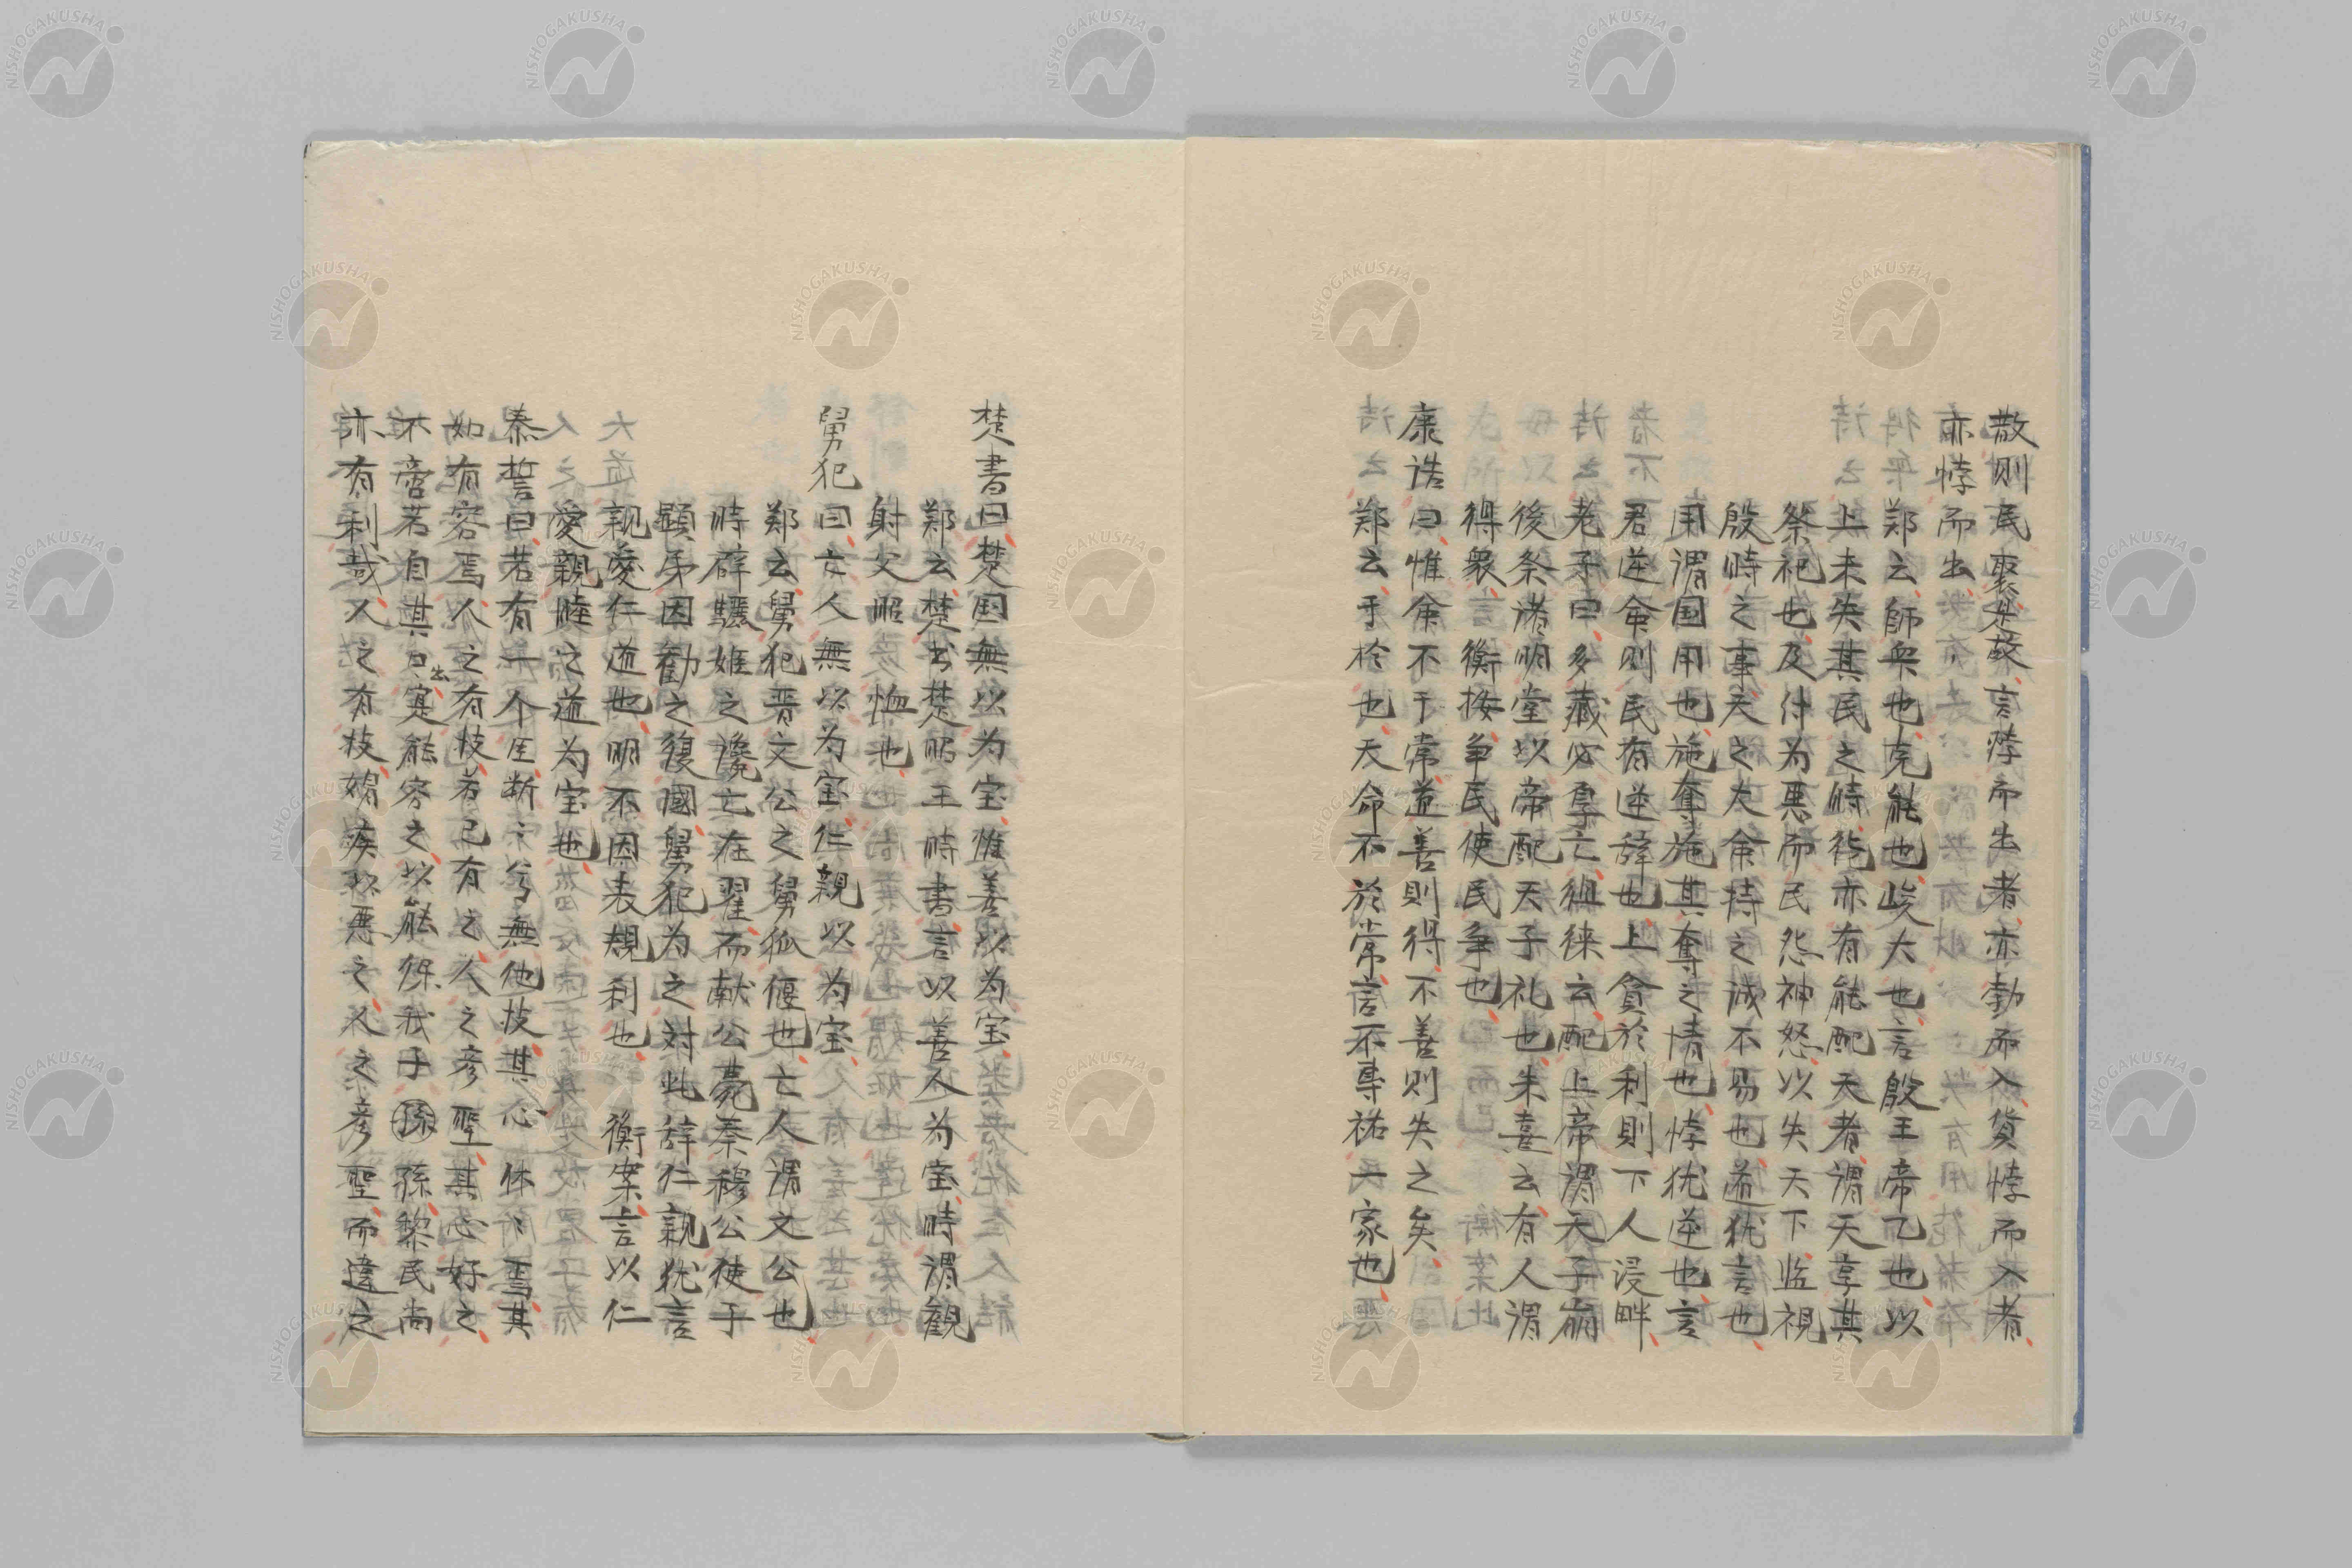 散則民聚是故言悖而出者亦勃而入貨悖而入者
亦悖而出
鄭云師衆也克能也峻大也言殷王帝乙也以
上未失其民之時德亦有能配天者謂天享其
祭祀也及付为悪而民怨神怒以失天下监視
殷時之事天之大命持之誠不易也道犹言也
用謂国用也施奪施其奪之情也悖犹逆也言
君逆命則民有逆辞也上貪於利則下人浸畔
老子曰多藏必厚亡徂徠云配上帝謂天子崩
後祭諸明堂以帝配天子礼也朱熹云有人謂
得衆 衡按争民使民争也
康誥曰惟命不于常道善則得不善則失之矣
鄭云于於也天命不於常言不專祐一家也
楚書曰楚国無以为宝惟善以为宝
鄭云楚书楚昭王時書言以善人为宝時謂観
射父昭 恤也
舅犯曰亡人無以为宝仁親以为宝
鄭云舅犯晋文公之舅狐偃也亡人謂文公也
時辟驪姫之讒亡在翟而献公薨秦穆公使子
顕弔因勧之復國舅犯为之対此辞仁親犹言
親愛仁道也明不因喪規利也 衡案言以仁
愛親睦之道为宝也
秦誓曰若有一个臣断〻兮無他技其心休〻焉其
如有容焉人之有技若己有之人之彦聖其心好之
不啻若自其口出寔能容之以能保我子孫孫黎民尚
亦有利哉人之有技媢疾以悪之人之彦聖而違之
NISHOGAKUSHA